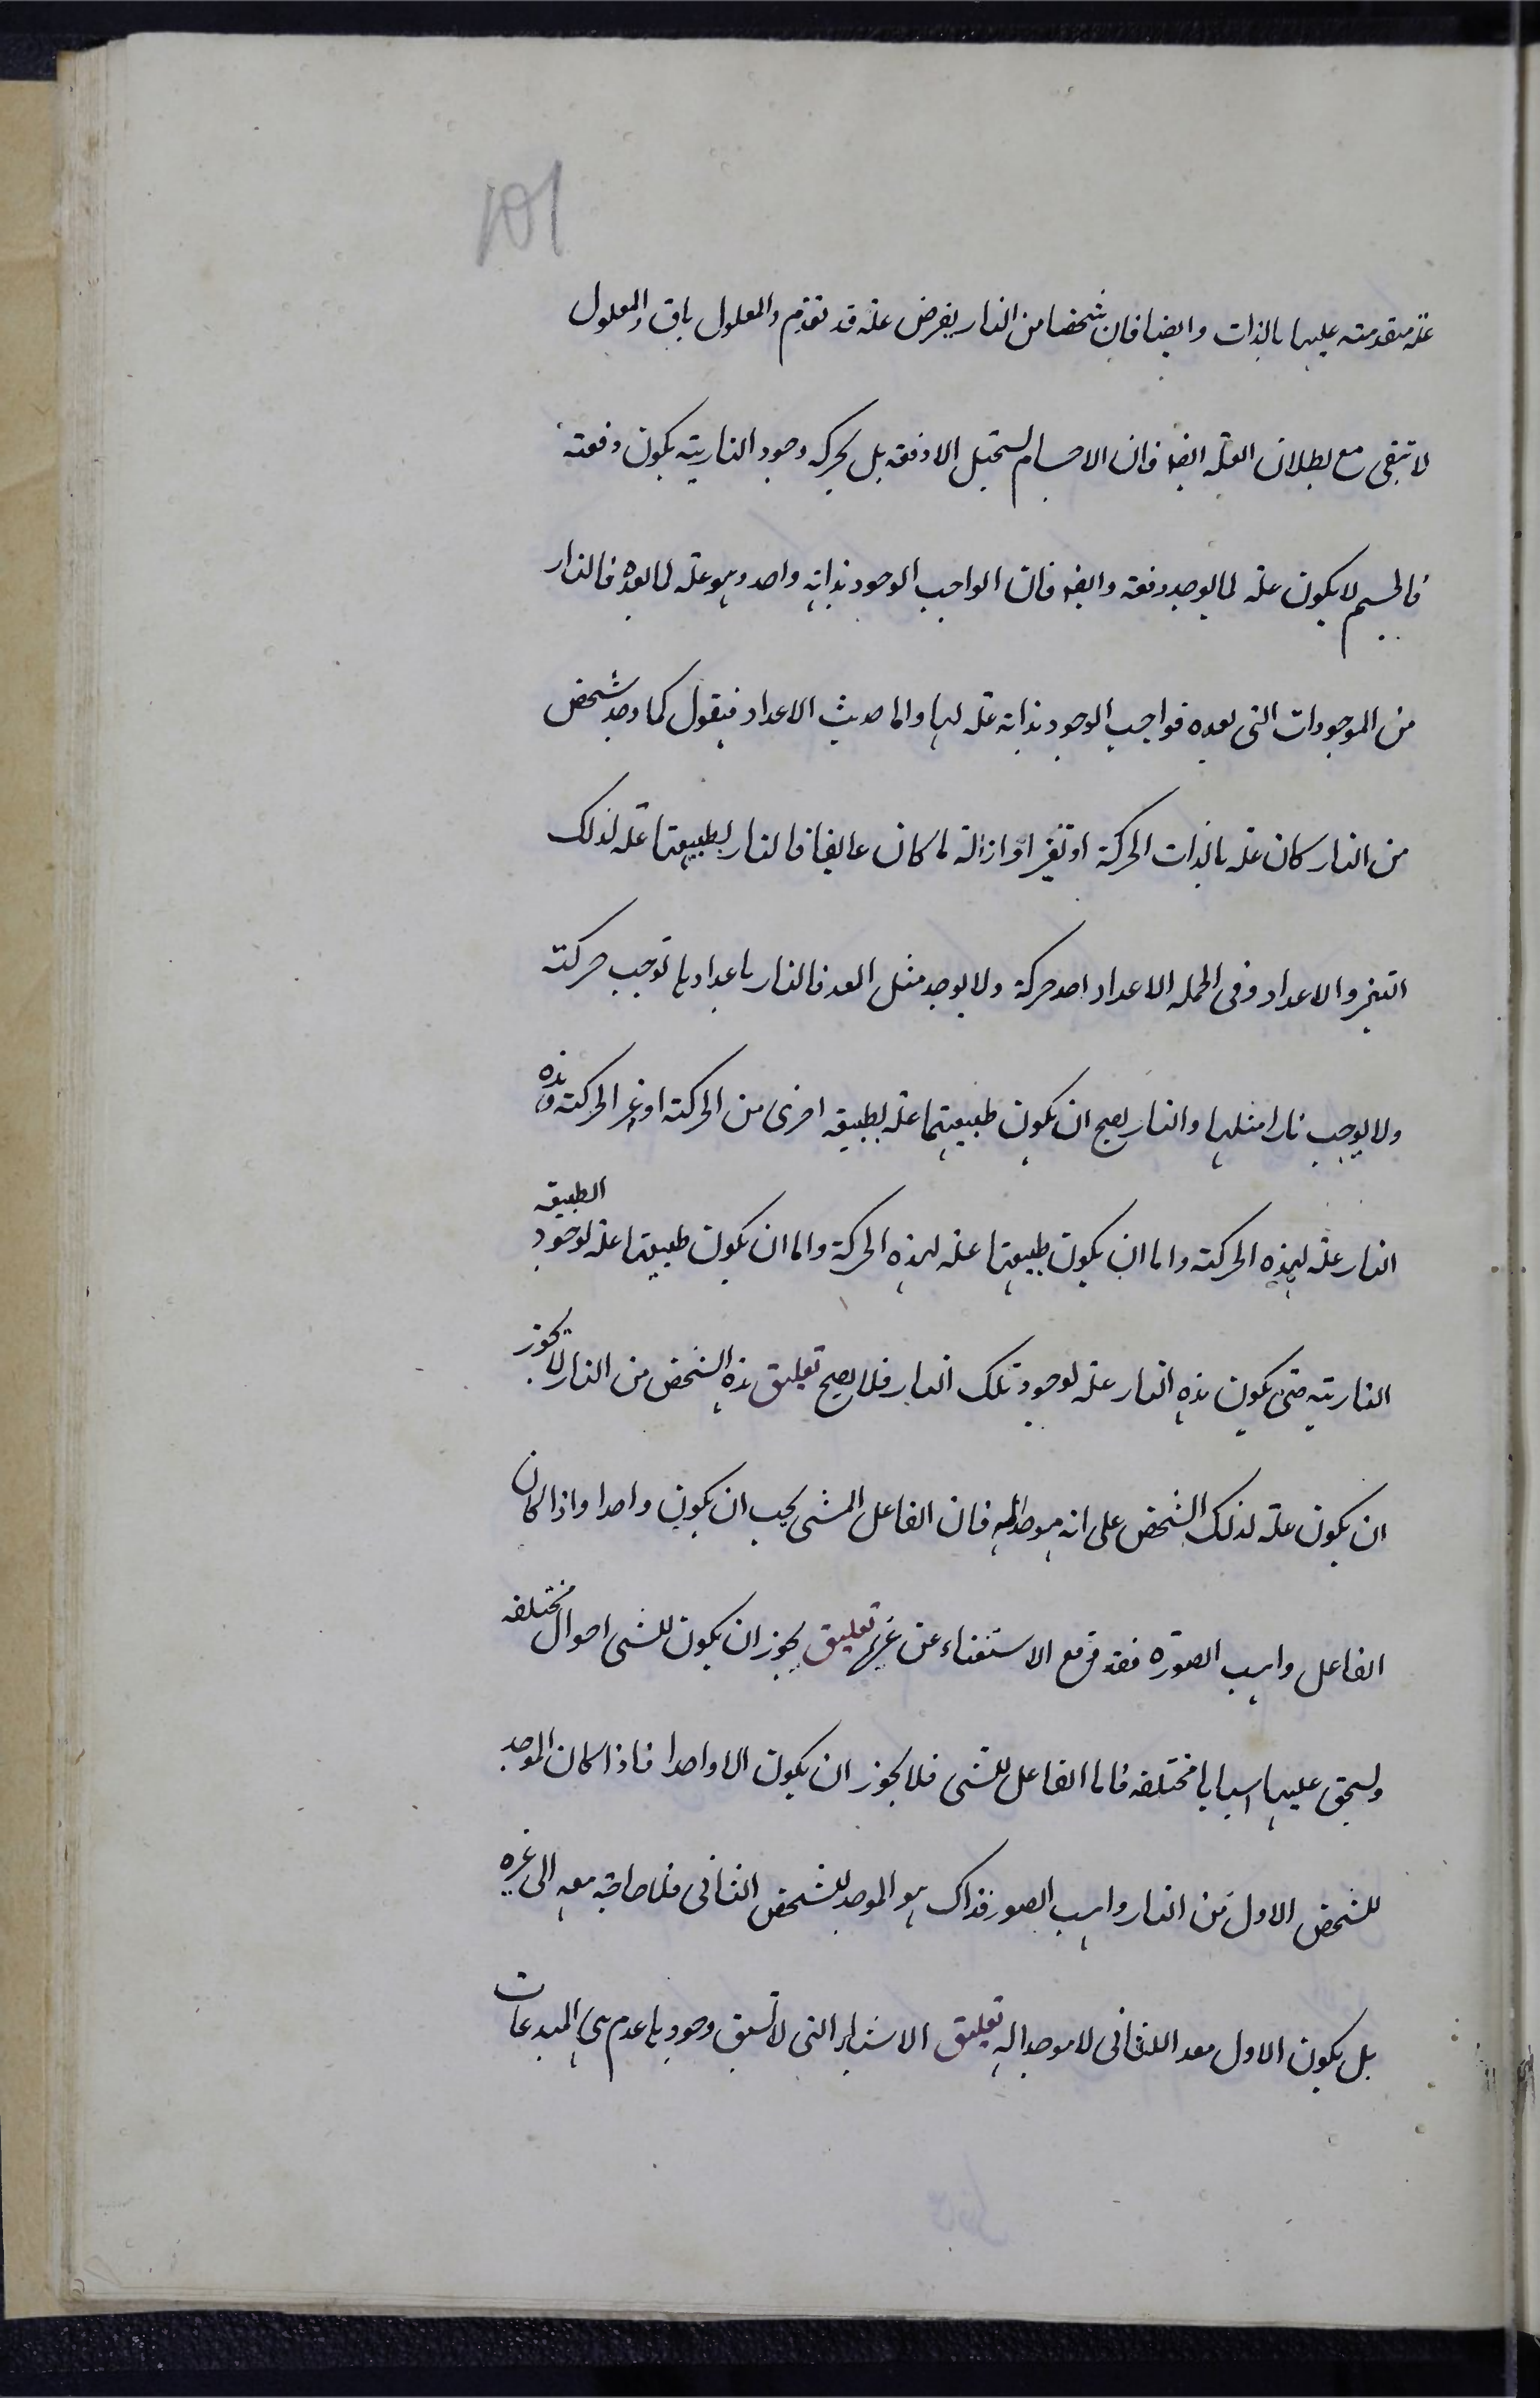 101
علة متقدمته عليها بالذات وايضا فان شخصا من النار يفرض علة قد تقدم والمعلول باق والمعلول
لا تبقى مع بطلان العلة ايضا فان الاجسام لستحيل الا دفعه بل بحركه وجود النارية يكون دفعته
فالجسم لا يكون علة لما يوجد دفعة وايضا فان الواجب الوجود بذاته واحد وهو علة لما بعده فالنار
من الموجودات التى بعده فواجب الوجود بذاته علة لها واما حديث الاعداد فيقول كما وجد شخص
من النار كان علة بالذات الحركة او تغير او ازالة لما كان عايقا فالنار بطبيعتها علة لذلك
التغير والاعداد وفى الجملة الاعداد احد حركة ولا يوجد مثل المعد فالنار باعدادها توجب حركته
ولا يوجب نارا مثلها والنار يصح ان يكون طبيعتها علة لطبيعة اخرى من الحركة او غير الحركته وهذه
النار علة لهذه الحركته واما ان يكون طبيعتها علة لهذه الحركة واما ان يكون طبيعتها علة لوجود الطبيعة
النارية حتى يكون هذه النار علة لوجود تلك النار فلا يصح تعليق هذه الشخص من النار لا يجوز
ان يكون علة لذلك الشخص على انه موجد له فان الفاعل المشى يجب ان يكون واحدا واذا كان
الفاعل واهب الصورة فقد وقع الاستغناء عن غيره تعليق يجوز ان يكون للشى احوال مختلفه
ولستحق عليها اسبابا مختلفه فاما الفاعل للشى فلا يجوز ان يكون الا واحدا فاذا كان الموجد
للشخص الاول من النار واهب الصور فذاك هو الموجد للشخص الثانى فلا حاجة معه الى غيره
بل يكون الاول معدا للثانى لا موجدا له تعليق الاشياء التى لا تسبق وجودها عدم هى المبدعات